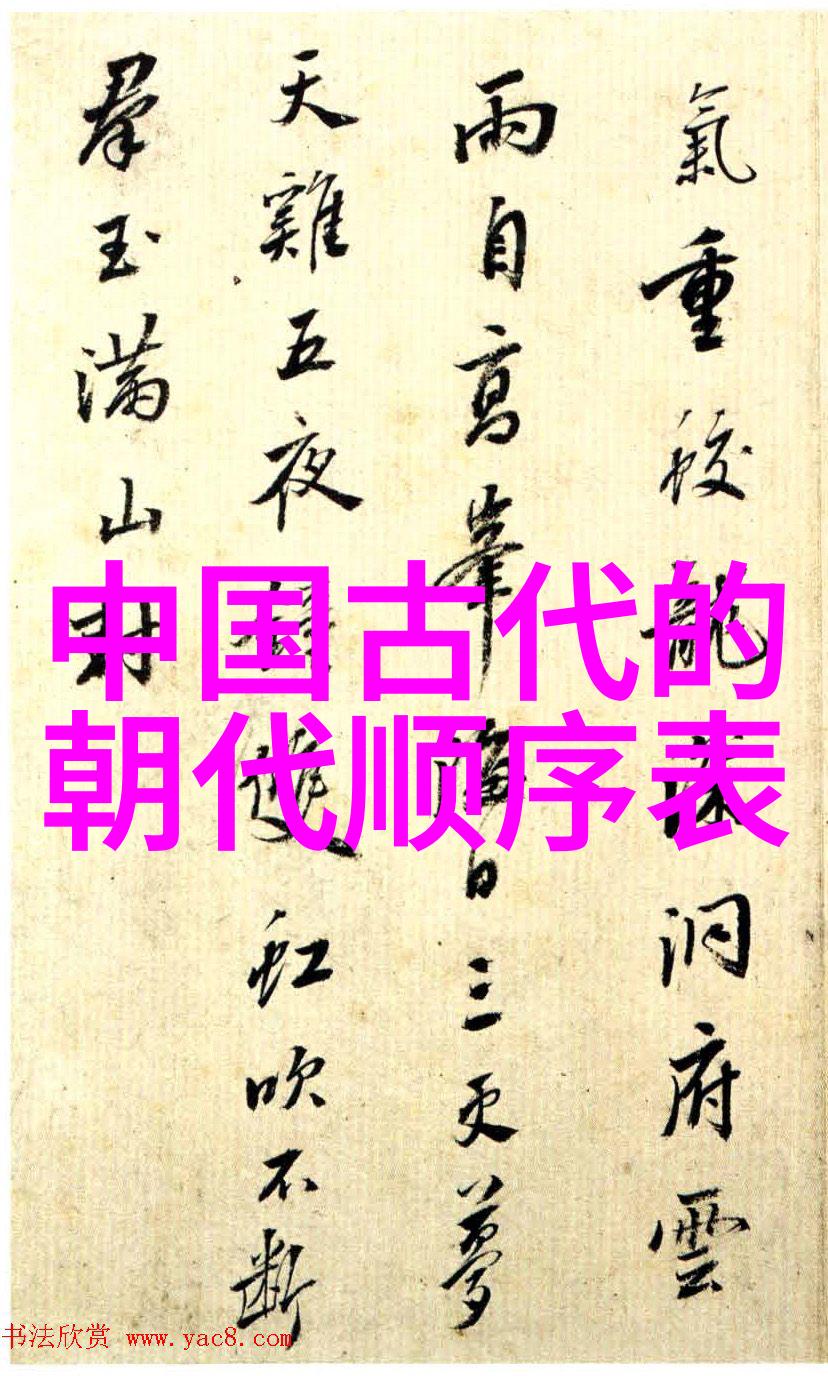 氣重蛟龍深洞府雲
雨自高峯海日三更夢
天雞五夜雙虹吹不斷
羣玉滿山
中国古代的
朝代顺序表
书法欣赏 www.yac8.com